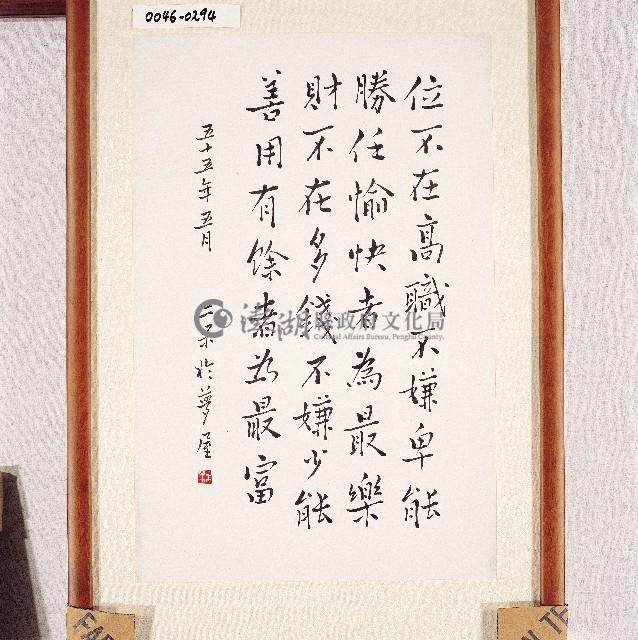 0046-0294
位不在高職不嫌卑能
勝任愉快者為最樂
財不在多錢不嫌少能
善用有餘者為最富
五十五年五月
於夢屋
澎湖縣政府文化局
Cultural Affairs Bureau, Penghu County.